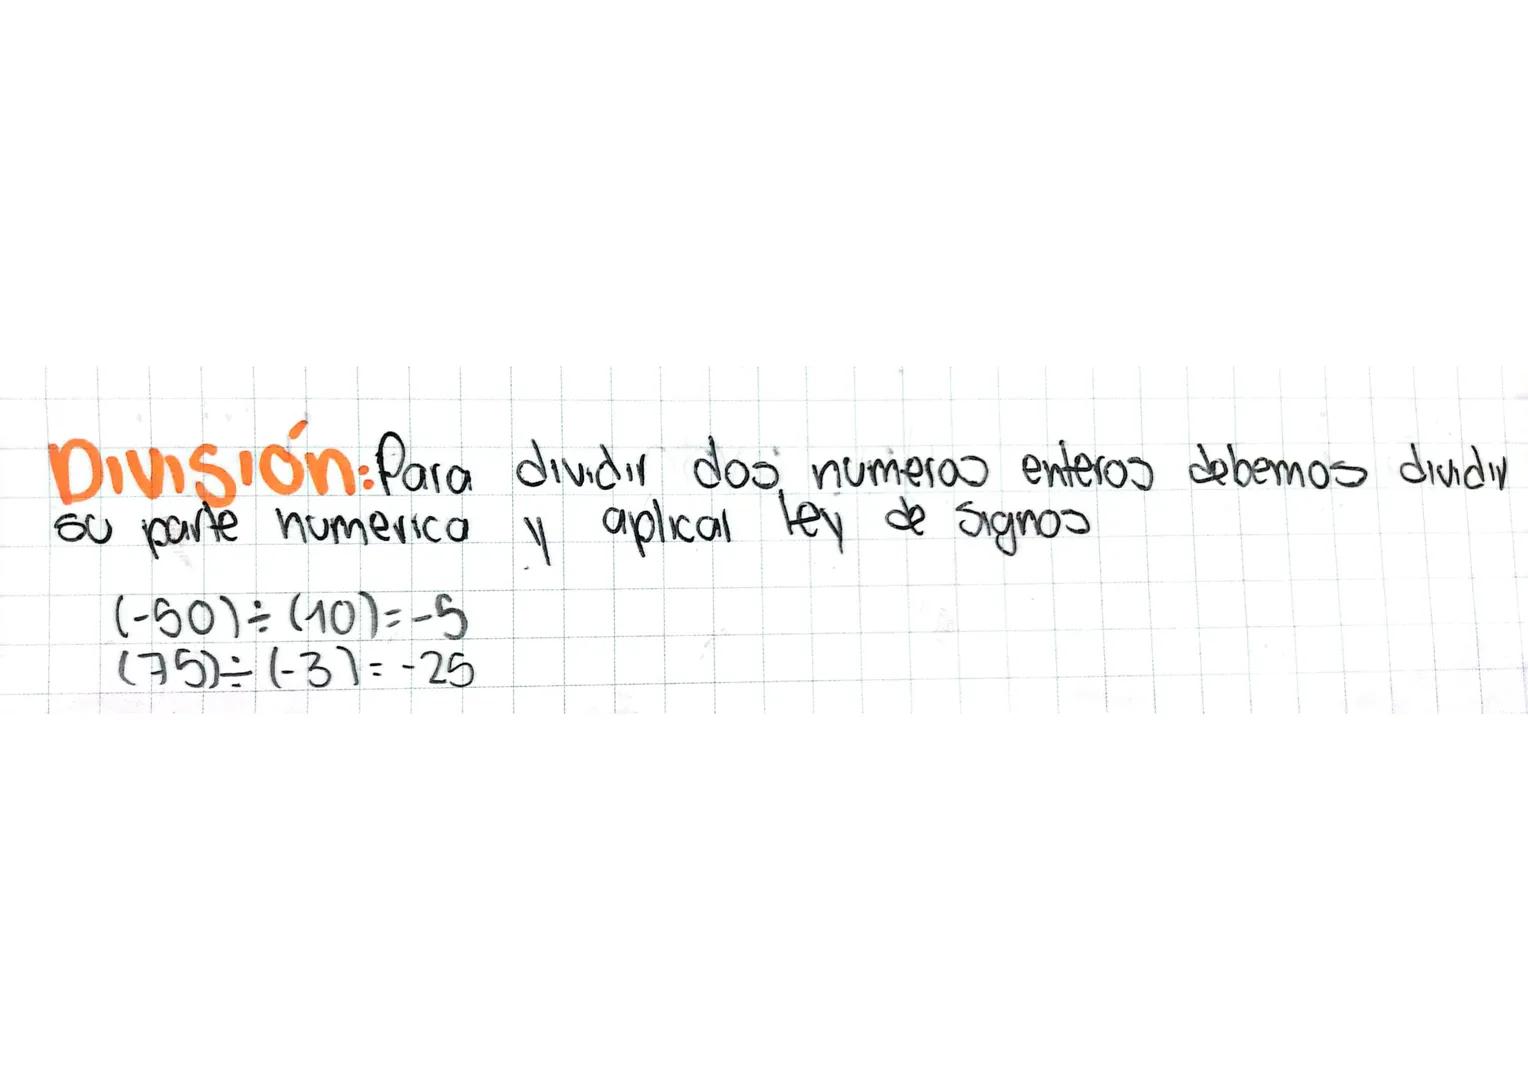 División: Para dividir dos numeros enteros debemos dividir
su parte numerica y aplical ley de signos
(-50) ÷ (10) = -5
(75) ÷ (-3) = -25